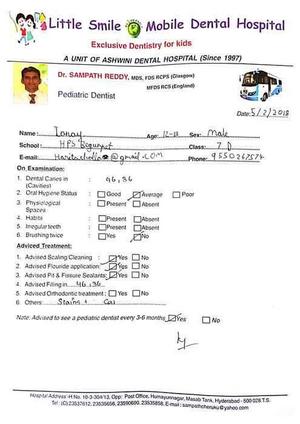 Little Smile Mobile Dental Hospital
Exclusive Dentistry for kids
A UNIT OF ASHWINI DENTAL HOSPITAL (Since 1997)
Dr. SAMPATH REDDY, MDS, FDS RCPS (Glasgow)
MFDS RCS (England)
Pediatric Dentist
Date: 5/2/2018
Name: Age: 12-13 Sex: Male
School: HPS Begumpet Class: 7 D
E-mail: @gmail.com Phone:
On Examination:
1. Dental Caries in (Cavities) 46,36
2. Oral Hygiene Status : Good Average Poor
3. Physiological Spaces : Present Absent
4. Habits : Present Absent
5. Irregular teeth : Present Absent
6. Brushing twice : Yes No
Adviced Treatment:
1. Advised Scaling Cleaning : Yes No
2. Advised Flouride application : Yes No
3. Advised Pit & Fissure Sealants : Yes No
4. Advised Filling in 46,36
5. Advised Orthodontic treatment : Yes No
6 Others : Stains +
Note: Advised to see a pediatric dentist every 3-6 months Yes No
Hospital Address: H.No. 10-3-304/13, Opp: Post Office, Humayunnagar, Masab Tank, Hyderabad - 500 028 T.S.